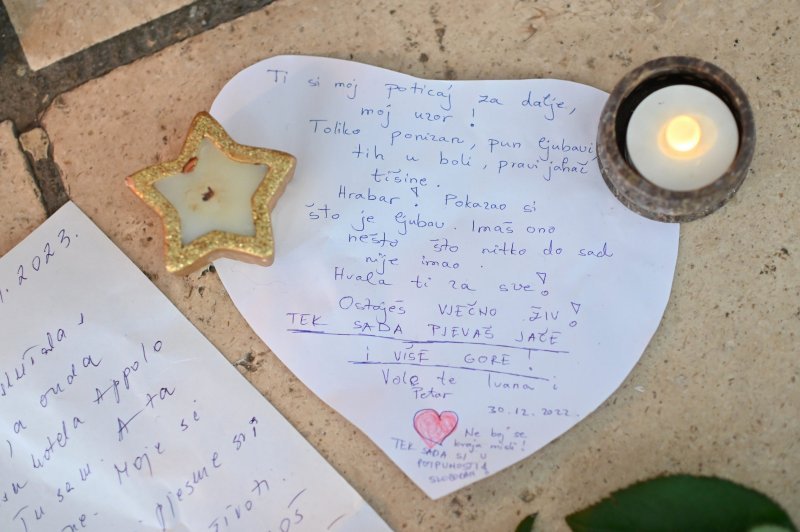 Ti si moj poticaj za dalje,
moj uzor!
Toliko ponizan, pun ljubavi,
tih u boli, pravi jahač
tišine.
Hrabar! Pokazao si
što je ljubav. Imaš ono
nešto što nitko do sad
nije imao.
Hvala ti za sve!
Ostaješ VJEČNO ŽIV!
TEK SADA PJEVAŠ JAČE
I VIŠE GORE!
Vole te Ivana i
Petar
30.12.2022.
Ne boj se
kraja misli!
TEK SADA SI U
POTPUNOSTI
SLOBODAN!
.2023.
onda
hotela Appolo
A ta
Tu sam. Moje si
pjesme si